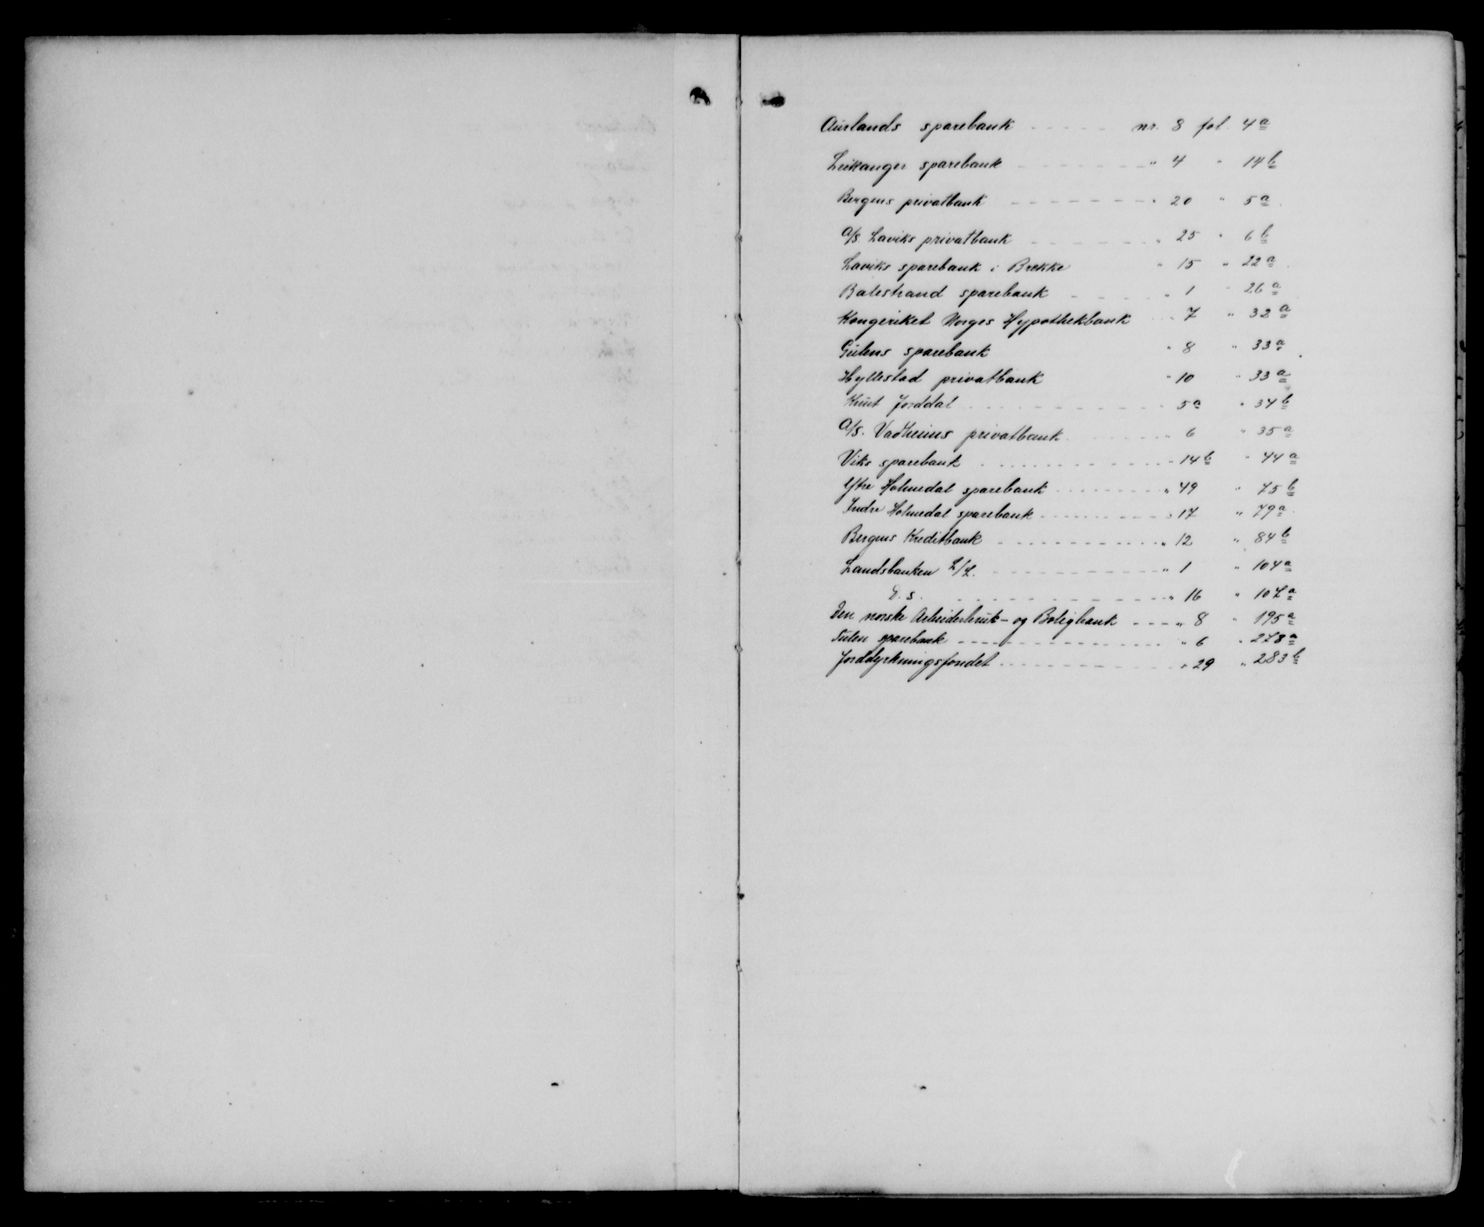 Aurlands sparebank - - - - - nr. 8 fol. 4a
Leikanger sparebank - - - - - - - " 4 " 14b
Bergens privatbank - - - - - - - " 20 " 5a
A/S. Laviks privatbank - - - - - - " 25 " 6b
Laviks sparebank i Brekke " 15 " 22a
Balestrand sparebank - - - - " 1 " 26a
Kongeriket Norges Hypothekbank " 7 " 32a
Gulens sparebank " 8 " 33a
Hyllestad privatbank " 10 " 33a
Knut Jorddal - - - - - - - - 5a " 34b
A/S. Vadheims privatbank - - - - - " 6 " 35a
Viks sparebank - - - - - - - - " 14b " 44a
Ytre Holmedal sparebank - - - - - - " 49 " 75b
Indre Holmedal sparebank - - - - - - " 17 " 79a
Bergens Kreditbank - - - - - - - - " 12 " 84b
Landsbanken L/L. - - - - - - - - " 1 " 104a
D. s. - - - - - - - - " 16 " 107a
Den norske Arbeiderbruk- og Boligbank - - - " 8 " 195a
Gulen sparebank - - - - - - - - " 6 " 278a
Jorddyrkningsfondet - - - - - - - - " 29 " 283b